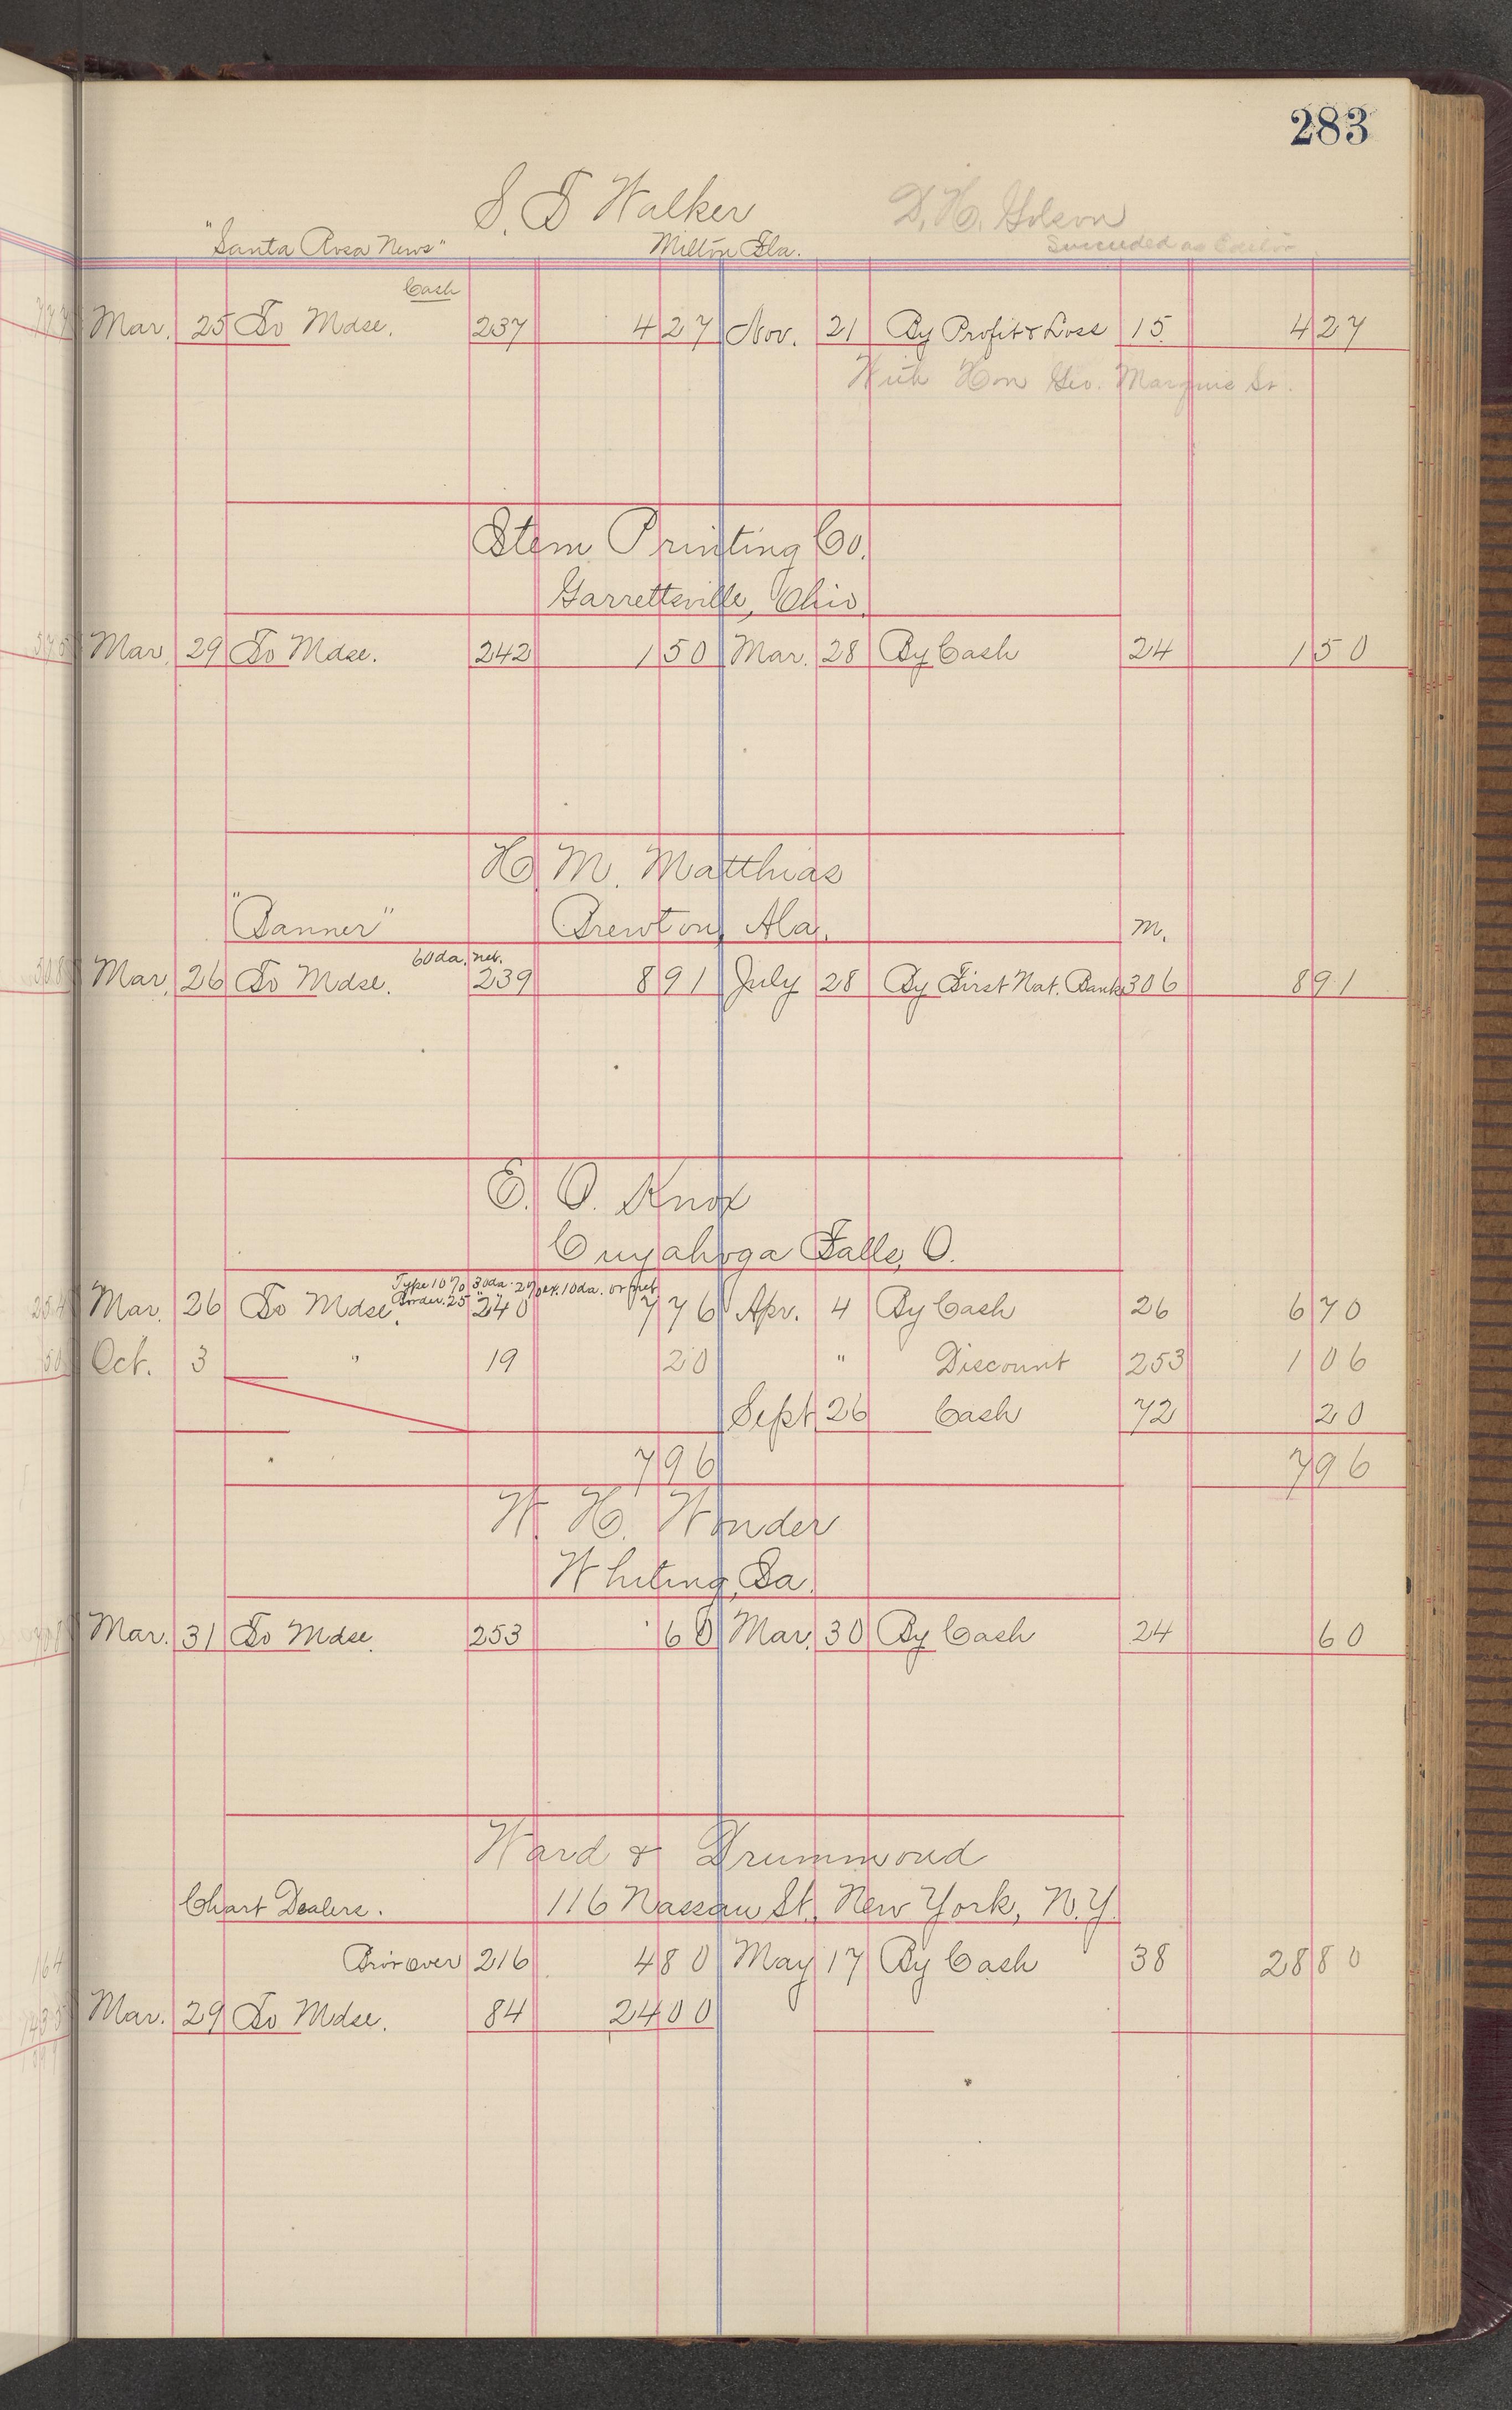 283
S. T Walker D. H. Golson
"Santa Rosa News" Milton Fla. Succeeded as Editor
Cash
Mar. 25 To Mdse. 237 4 27 Nov. 21 By Profit & Loss 15 4 27
With Hon Geo. Marquis Sr.
Stem Printing Co.
Garrettsville, Ohio.
Mar. 29 To Mdse. 242 1 50 Mar. 28 By Cash 24 1 50
H. M. Matthias
"Banner" Brewton, Ala. M.
60 da. net.
Mar. 26 To Mdse. 239 8 91 July 28 By First Nat. Bank 306 8 91
E. O. Knox
Cuyahoga Falls, O.
Type 10% 30da. 2% ex. 10da. or net
Border. 25 " "
Mar. 26 To Mdse. 240 7 76 Apr. 4 By Cash 26 6 70
Oct. 3 " 19 20 " Discount 253 1 06
Sept 26 Cash 72 20
7 96 7 96
W. H. Wonder
Whiting, Ia.
Mar. 31 To Mdse. 253 60 Mar. 30 By Cash 24 60
Ward & Drummond
Chart Dealers. 116 Nassau St. New York, N.Y.
Bro't over 216 4 80 May 17 By Cash 38 28 80
Mar. 29 To Mdse. 84 24 00